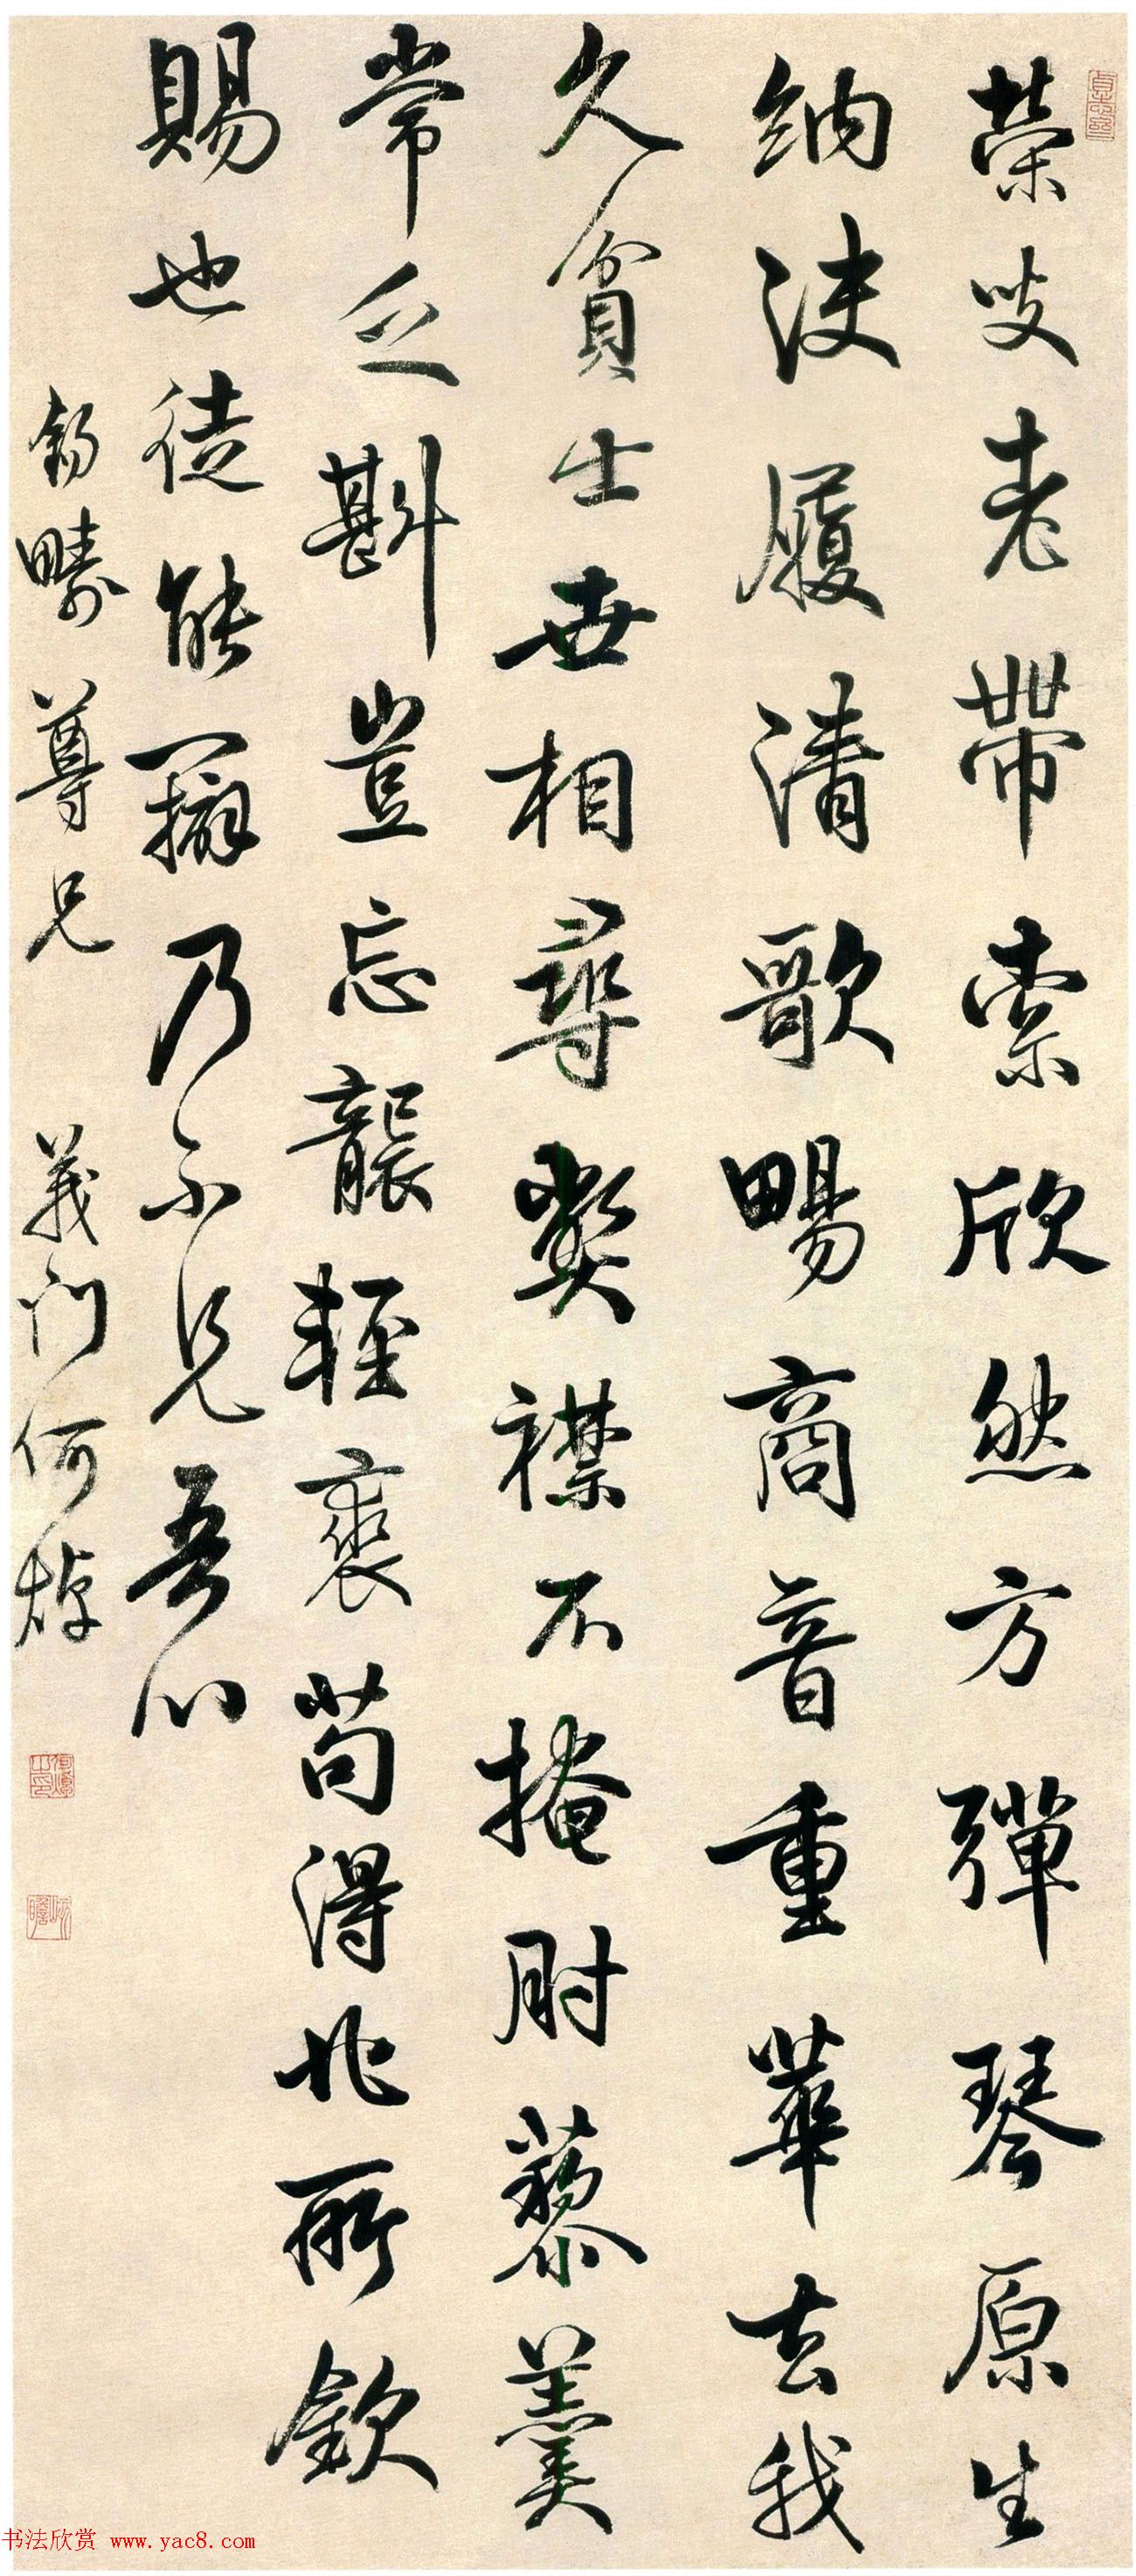 榮叟老帶索欣然方彈琴原生
納決履清歌暢商音重華去我
久貧士世相尋弊襟不掩肘藜羹
常乏斟豈忘襲輕裘苟得非所欽
賜也徒能辯乃不見吾心
錫疇尊兄 義門何焯
何焯之印
屺瞻
书法欣赏 www.yac8.com